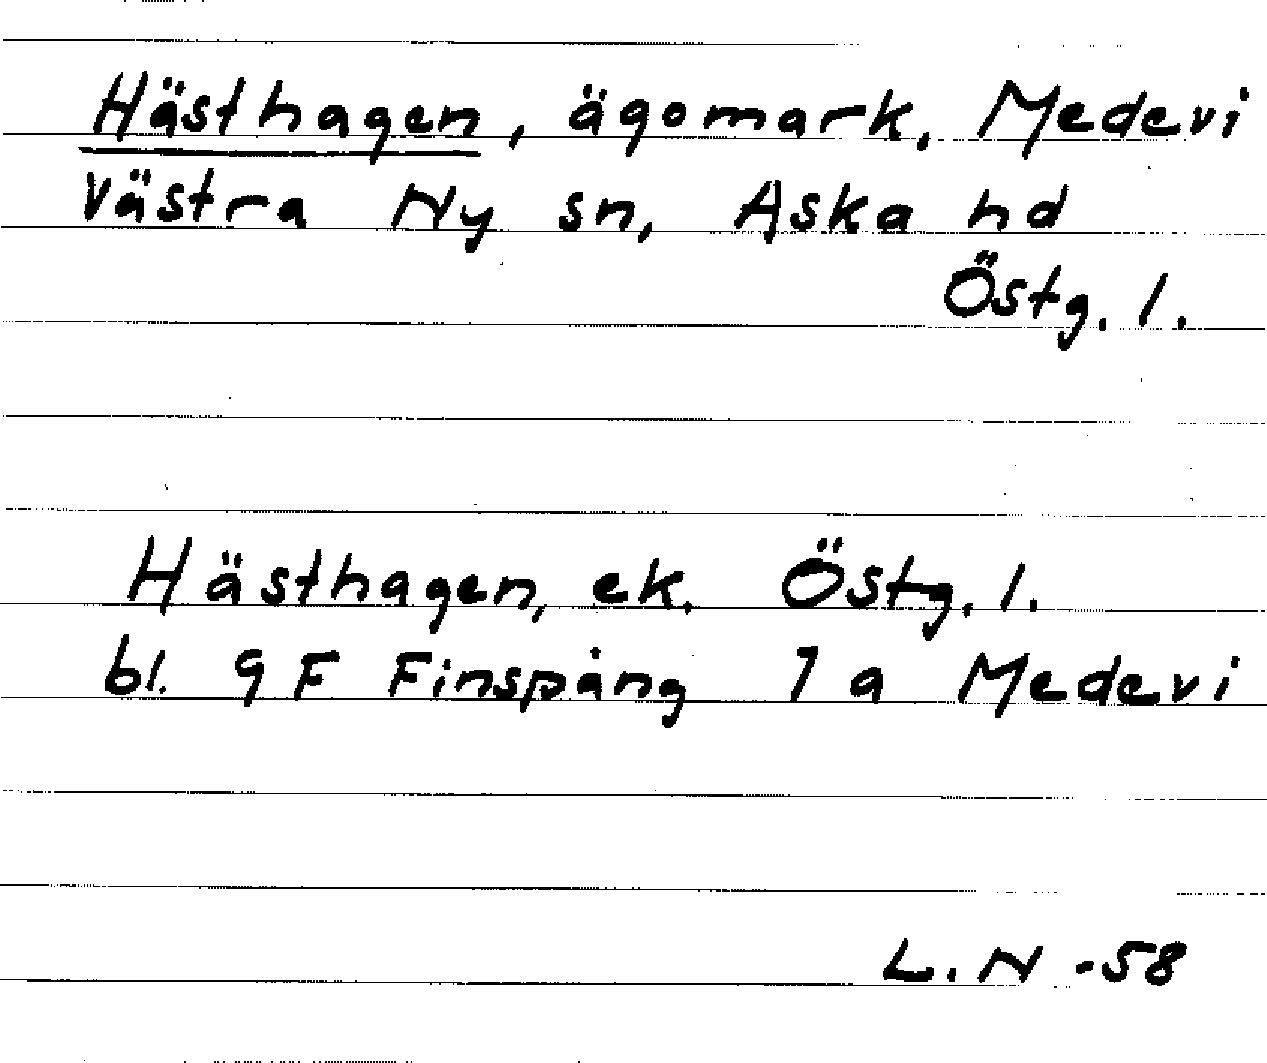 Hästhagen, ägomark, Medevi
Västra Ny sn, Aska hd
Östg. l.
Hästhagen, ek. Östg. l.
bl. 9 F Finspång 7 a Medevi
L. N -58